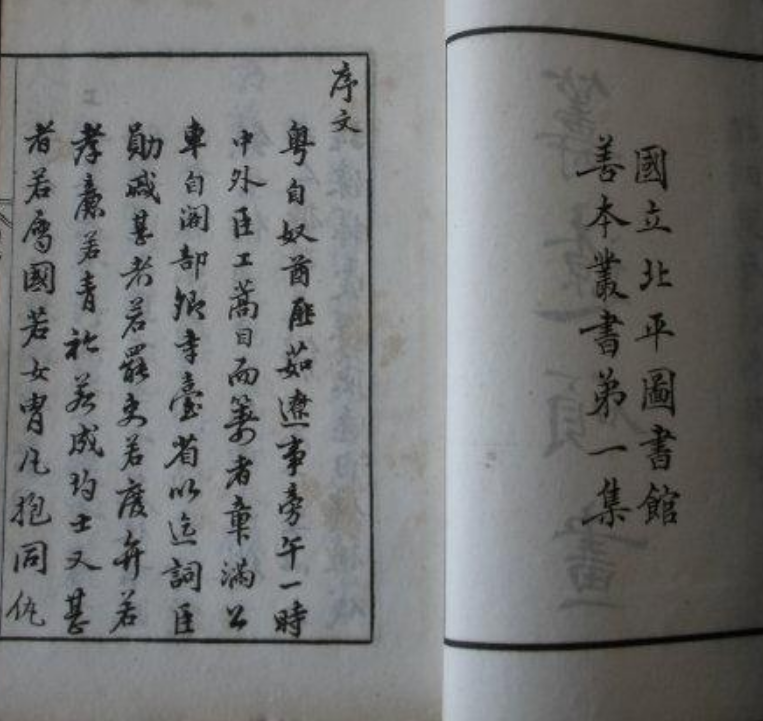 國立北平圖書館
善本叢書第一集
序文
粤自奴酋匪茹遼事旁午一時
中外臣工蒿目而籌者章滿公
車自閣部卿寺臺省以迄詞臣
勛戚甚者若罷吏若廢弁若
孝廉若青衿若成均士又甚
者若屬國若女胄凡抱同仇